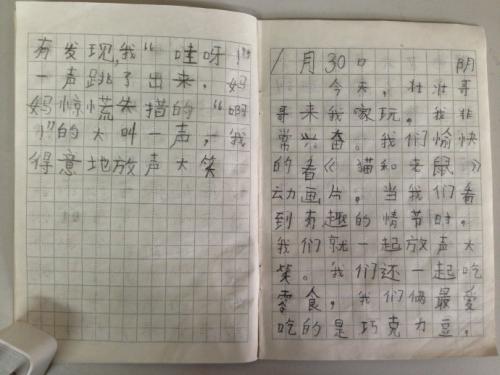 有发现,我“哇呀!”
一声跳了出来,妈
妈惊慌失措的“啊
!”的大叫一声,我
得意地放声大笑
1月30日 阴
今天,壮壮哥
哥来我家玩。我非
常兴奋。我们愉快
的看《猫和老鼠》
动画片。当我们看
到有趣的情节时,
我们就一起放声大
笑。我们还一起吃
零食,我们俩最爱
吃的是巧克力豆,